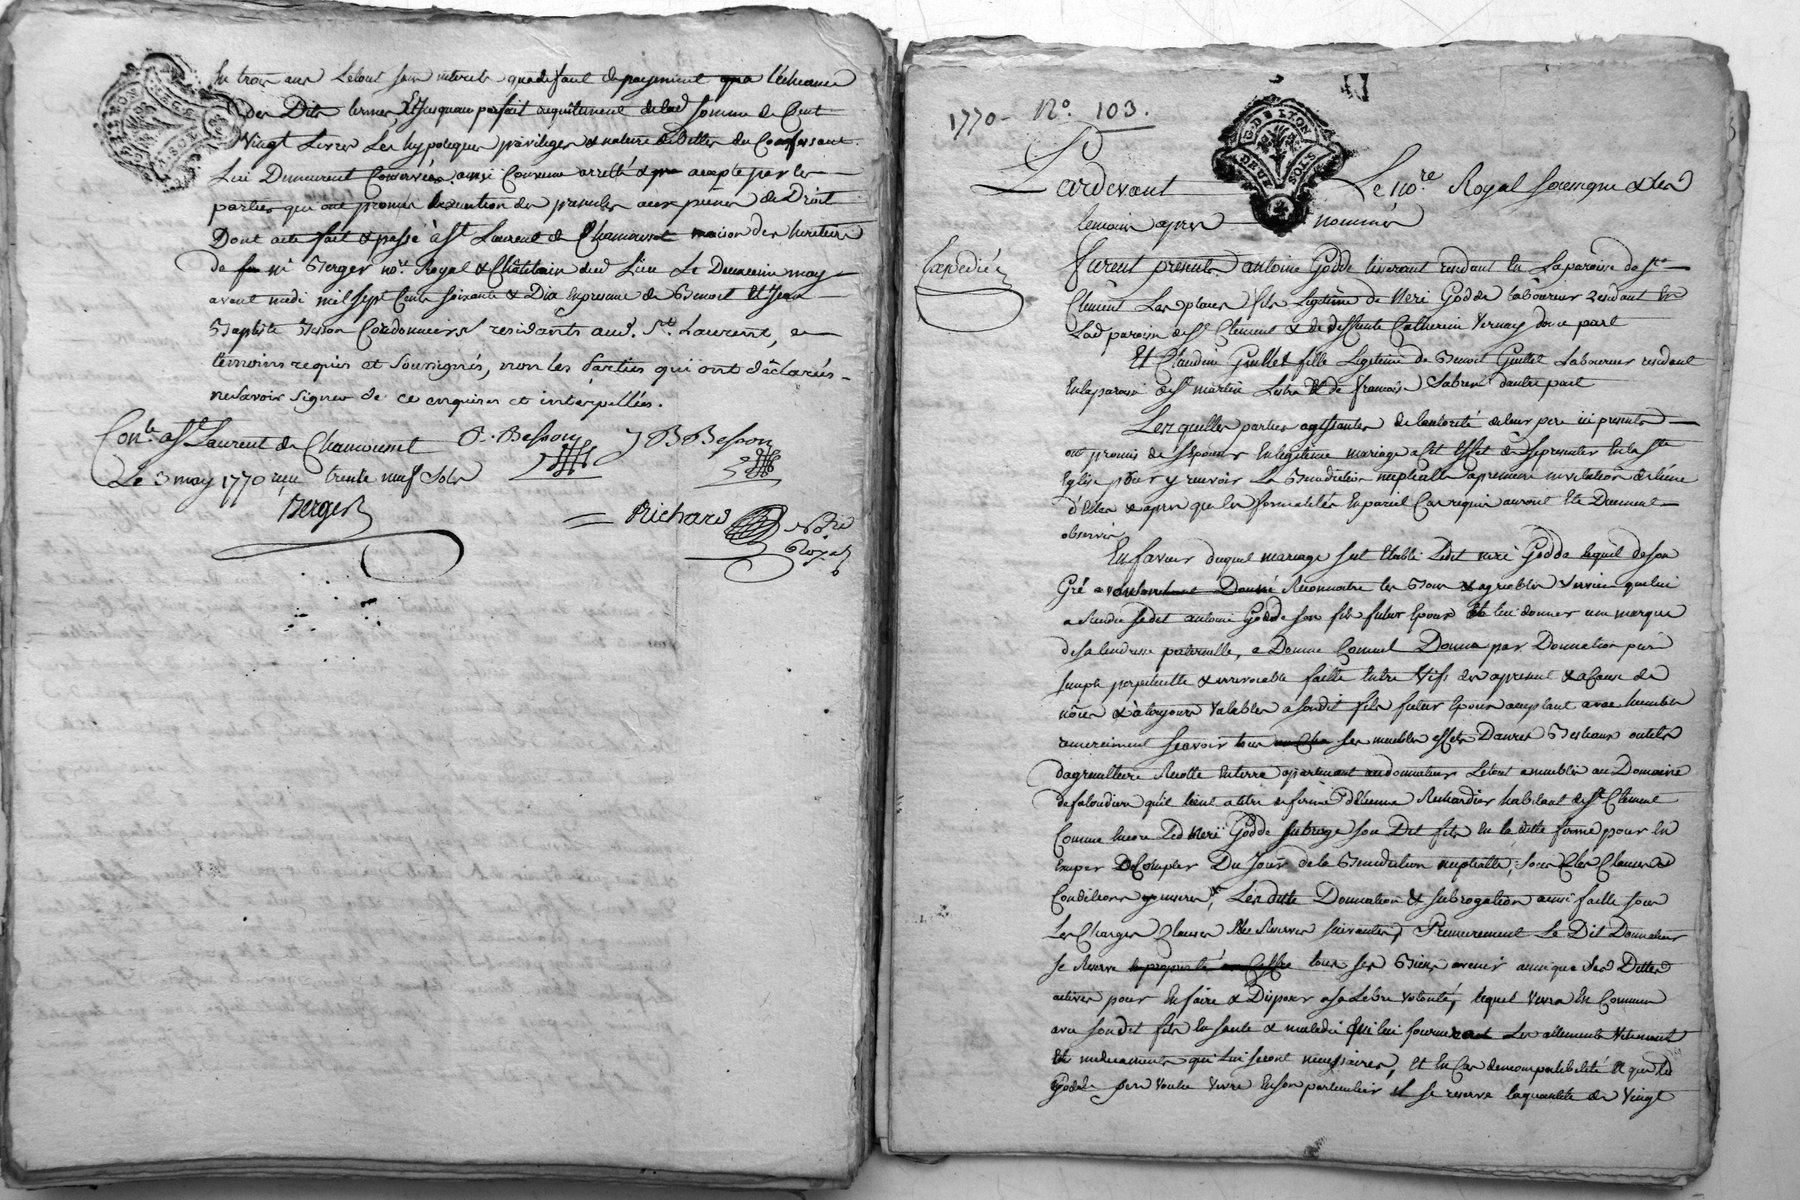 En trois ans Letout sans interets qua defaut de payement a l'écheance
des Dits termes & Jusquau parfait acquittement de lad. somme de Cent
Vingt Livres Les hypoteques privileges & nature de Dettes du Confessant
Lui Demeurent Conservées ainsi Convenu arretté & accepté par les
parties qui ont promis Execution des presentes aux peines de Droit
Dont acte fait & passé à St Laurent de Chamousset maison des heritiers
de Me Berger nore. Royal & Châtelain dud Lieu Le Deuxieme may
avant midi mil sept Cents soixante & Dix En presence de Benoit Et Jean
Baptiste Besson Cordonniers residants aud. St. Laurent,
temoins requis et soussignés, non les Parties qui ont déclarés
ne savoir signer de ce enquises et interpellées.
Conle. a St Laurent de Chamousset
Le 3 may 1770 reçu trente neuf sols
Berger
B. Besson
J B Besson
Richard
Nore
Royal
G. D E LYON
DEUX SOLS
1770 - No. 103.
Pardevant Le nore. Royal soussigné & les
temoins apres nommés
Expedié
Furent presents antoine Godde tisserant residant En La paroisse de St
Clement Les places fils Legitime de Neri Godde laboureur residant En
Lad paroisse de St Clement & de deffunte Catherine Vernay d'une part
Et Claudine Guillet fille Legitime de Benoit Guillet Laboureur residant
En la paroisse de St martin Lestra & de françoise Sabren d'autre part
Lesquelles parties agissantes de l'autorité de leurs pere ici presents
ont promis de s'Epouser En legitime mariage a cet Effet de se presenter En la Ste
Eglise pour y recevoir La Benediction nuptialle a premiere invitation de l'une
d'Elles & apres que les formalités En pareil Cas requises auront Eté Duement
observées
En faveur duquel mariage sest Etabli Ledit neri Godde lequel de son
Gré Reconnaitre les Bons & agreables services que lui
a Rendu Ledit antoine Godde son fils futur Epoux & lui donner une marque
de sa tendresse paternelle, a Donné Comme il Donne par Donnation pure
simple perpetuelle & irrevocable faitte Entre Vifs des apresent & a Cause de
nôces & à toujours Valable a sondit fils futur Epoux acceptant avec humble
remerciment sçavoir tous ses meubles effets Danrées Bestiaux outils
dagriculture Recolte En terre apartenant au donnateur Letout ameublis au Domaine
de faloudiere qu'il tient a titre de ferme d'Etienne Richardier habitant de St Clement
Comme Encore Led Neri Godde subroge son Dit fils En la ditte ferme pour En
Comptes Du Jour de la Benediction nuptialle, sous Les Clauses &
Conditions y inserées, Les dittes Donnation & subrogation ainsi faitte sous
Les Charges Clauses & Reserves suivantes, Premierement Le Dit Donnateur
se Reserve tous ses Biens avenir ainsi que ses Dettes
actives pour En faire & Disposer a sa Libre volonté, lequel Vivra En Commun
avec sondit fils En santé & maladie qui lui fournira Les alliments Vêtements
Et medicaments qui Lui seront nécessaires, Et En Cas d'incompatibilité Et que led
Godde pere voulu vivre En son particulier il se reserve la quantité de Vingt